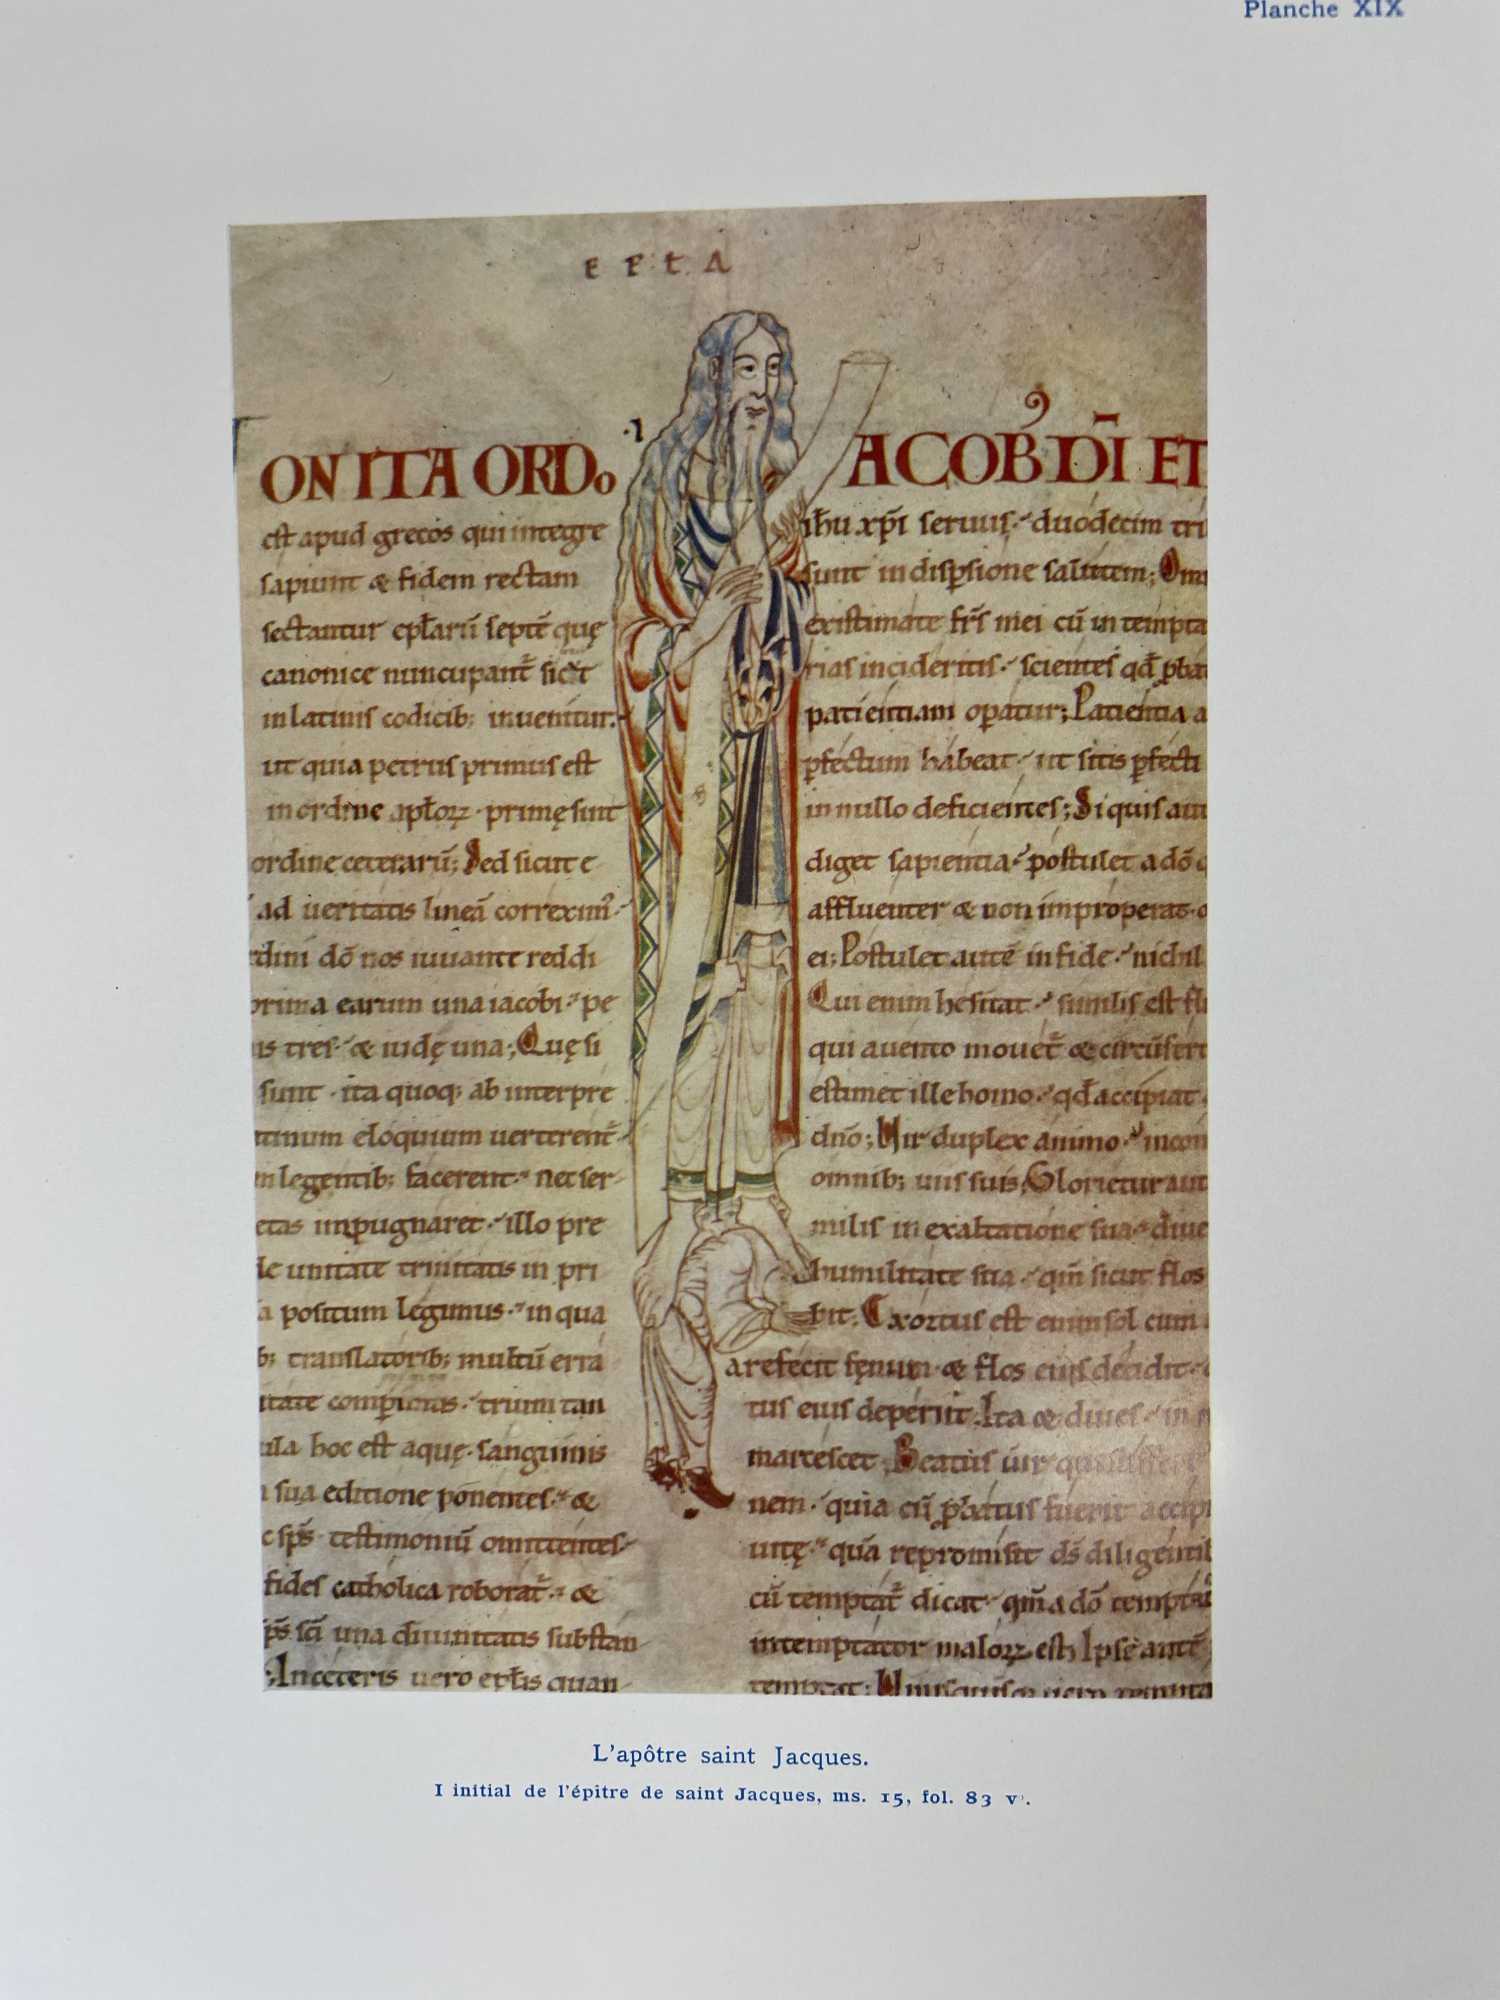 Planche XIX
E P t A
ON ITA ORDo
est apud grecos qui integre
sapiunt & fidem rectam
sectantur epłarū septē quę
canonice nuncupant᷑ sicut
in latinis codicib; inuenitur.
ut quia petrus primus est
in ordine apłoꝝ · primę sint
ordine ceterarū; Sed sicut e
ad ueritatis lineā correxim᷒
rdini dō nos iuuante reddi
prima earum una iacobi · pe
is tres · & iudę una; Quę si
sunt · ita quoq; ab interpre
atinum eloquium uerterent᷑
legentib; facerent · nec ser
etas impugnaret · illo pre
de unitate trinitatis in pri
a positum legimus · in qua
b; translatorib; multū erra
trium tan
ula hoc est aquę · sanguinis
sua editione ponentes · &
c sp̄s testimoniū omittentes ·
fides catholica roborat᷑ · &
sp̄s sc̄i una diuinitatis substan
; In ceteris uero epłis quan
· I
ACOBꝰ DĪ ET
ih̄u xp̄i seruus · duodecim tri
sunt in disp̱sione salutem; Om
existimate fr̄s mei cū in tempta
rias incideritis · scientes qđ ꝓba
patientiam oꝑatur; Patientia a
ꝑfectum habeat · ut sitis ꝑfecti
in nullo deficientes; Si quis au
diget sapientia · postulet a dō
affluenter & non improperat ·
ei; Postulet autē in fide · nichil
Qui enim hesitat · similis est fl
qui a uento mouet᷑ & circūfert
estimet ille homo · qđ accipiat
dn̄o; Vir duplex animo · incon
omnib; uiis suis; Glorietur aut
milis in exaltatione sua · diue
humilitate sua · qm̄ sicut flos
bit. Exortus est enim sol cum
arefecit fęnum · & flos eius decidit ·
tus eius deperiit. Ita & diues · in
marcescet; Beatus uir qui suffert
nem · quia cū ꝓbatus fuerit accipi
uitę · quā repromisit d̄s diligentib
cū temptat᷑ dicat · qm̄ a dō tempta
intemptator maloꝝ est; Ipse autē
temptat; Unusquisq; uero
L'apôtre saint Jacques.
I initial de l'épitre de saint Jacques, ms. 15, fol. 83 v°.